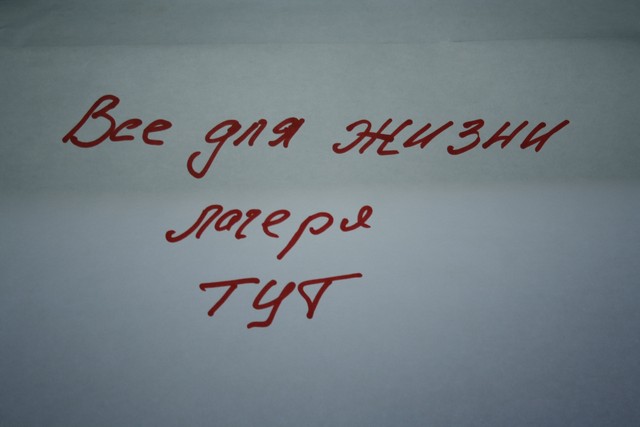 Все для жизни
лагеря
тут